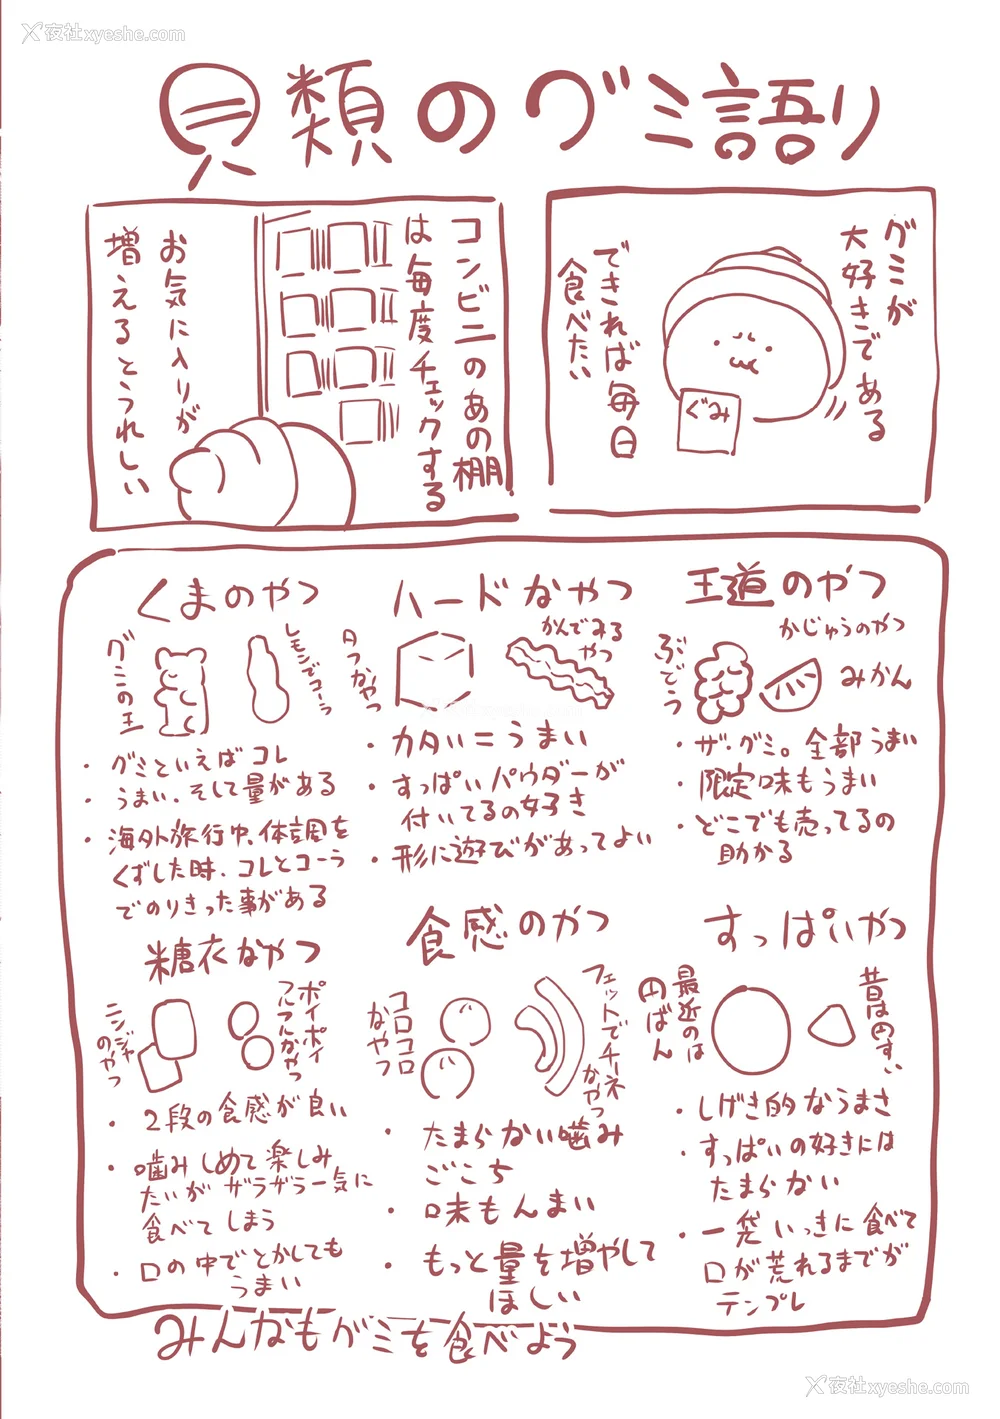 夜社xyeshe.com
貝類のグミ語り
グミが
大好きである
できれば毎日
食べたい
ぐみ
コンビニのあの棚
は毎度チェックする
お気に入りが
増えるとうれしい
王道のやつ
かじゅうのやつ
ぶどう
みかん
・ザ・グミ。全部うまい
・限定味もうまい
・どこでも売ってるの
助かる
ハードなやつ
かんでみる
やつ
タフなやつ
・カタい=うまい
・すっぱいパウダーが
付いてるの好き
・形に遊びがあってよい
くまのやつ
グミの王
レモンでコーラ
・グミといえばコレ
・うまい、そして量がある
・海外旅行中、体調を
くずした時、コレとコーラ
でのりきった事がある
すっぱいやつ
昔は円すい
最近のは
円ばん
・しげき的なうまさ
・すっぱいの好きには
たまらない
・一袋いっきに食べて
口が荒れるまでが
テンプレ
食感のやつ
フェットでチーネ
なやつ
コロコロ
なやつ
・たまらない噛み
ごこち
・味もんまい
・もっと量を増やして
ほしい
糖衣なやつ
ポイポイ
フルフルなやつ
ニンジャ
のやつ
・2段の食感が良い
・噛みしめて楽しみ
たいが ザラザラ一気に
食べてしまう
・口の中でとかしても
うまい
みんなもグミを食べよう
夜社xyeshe.com